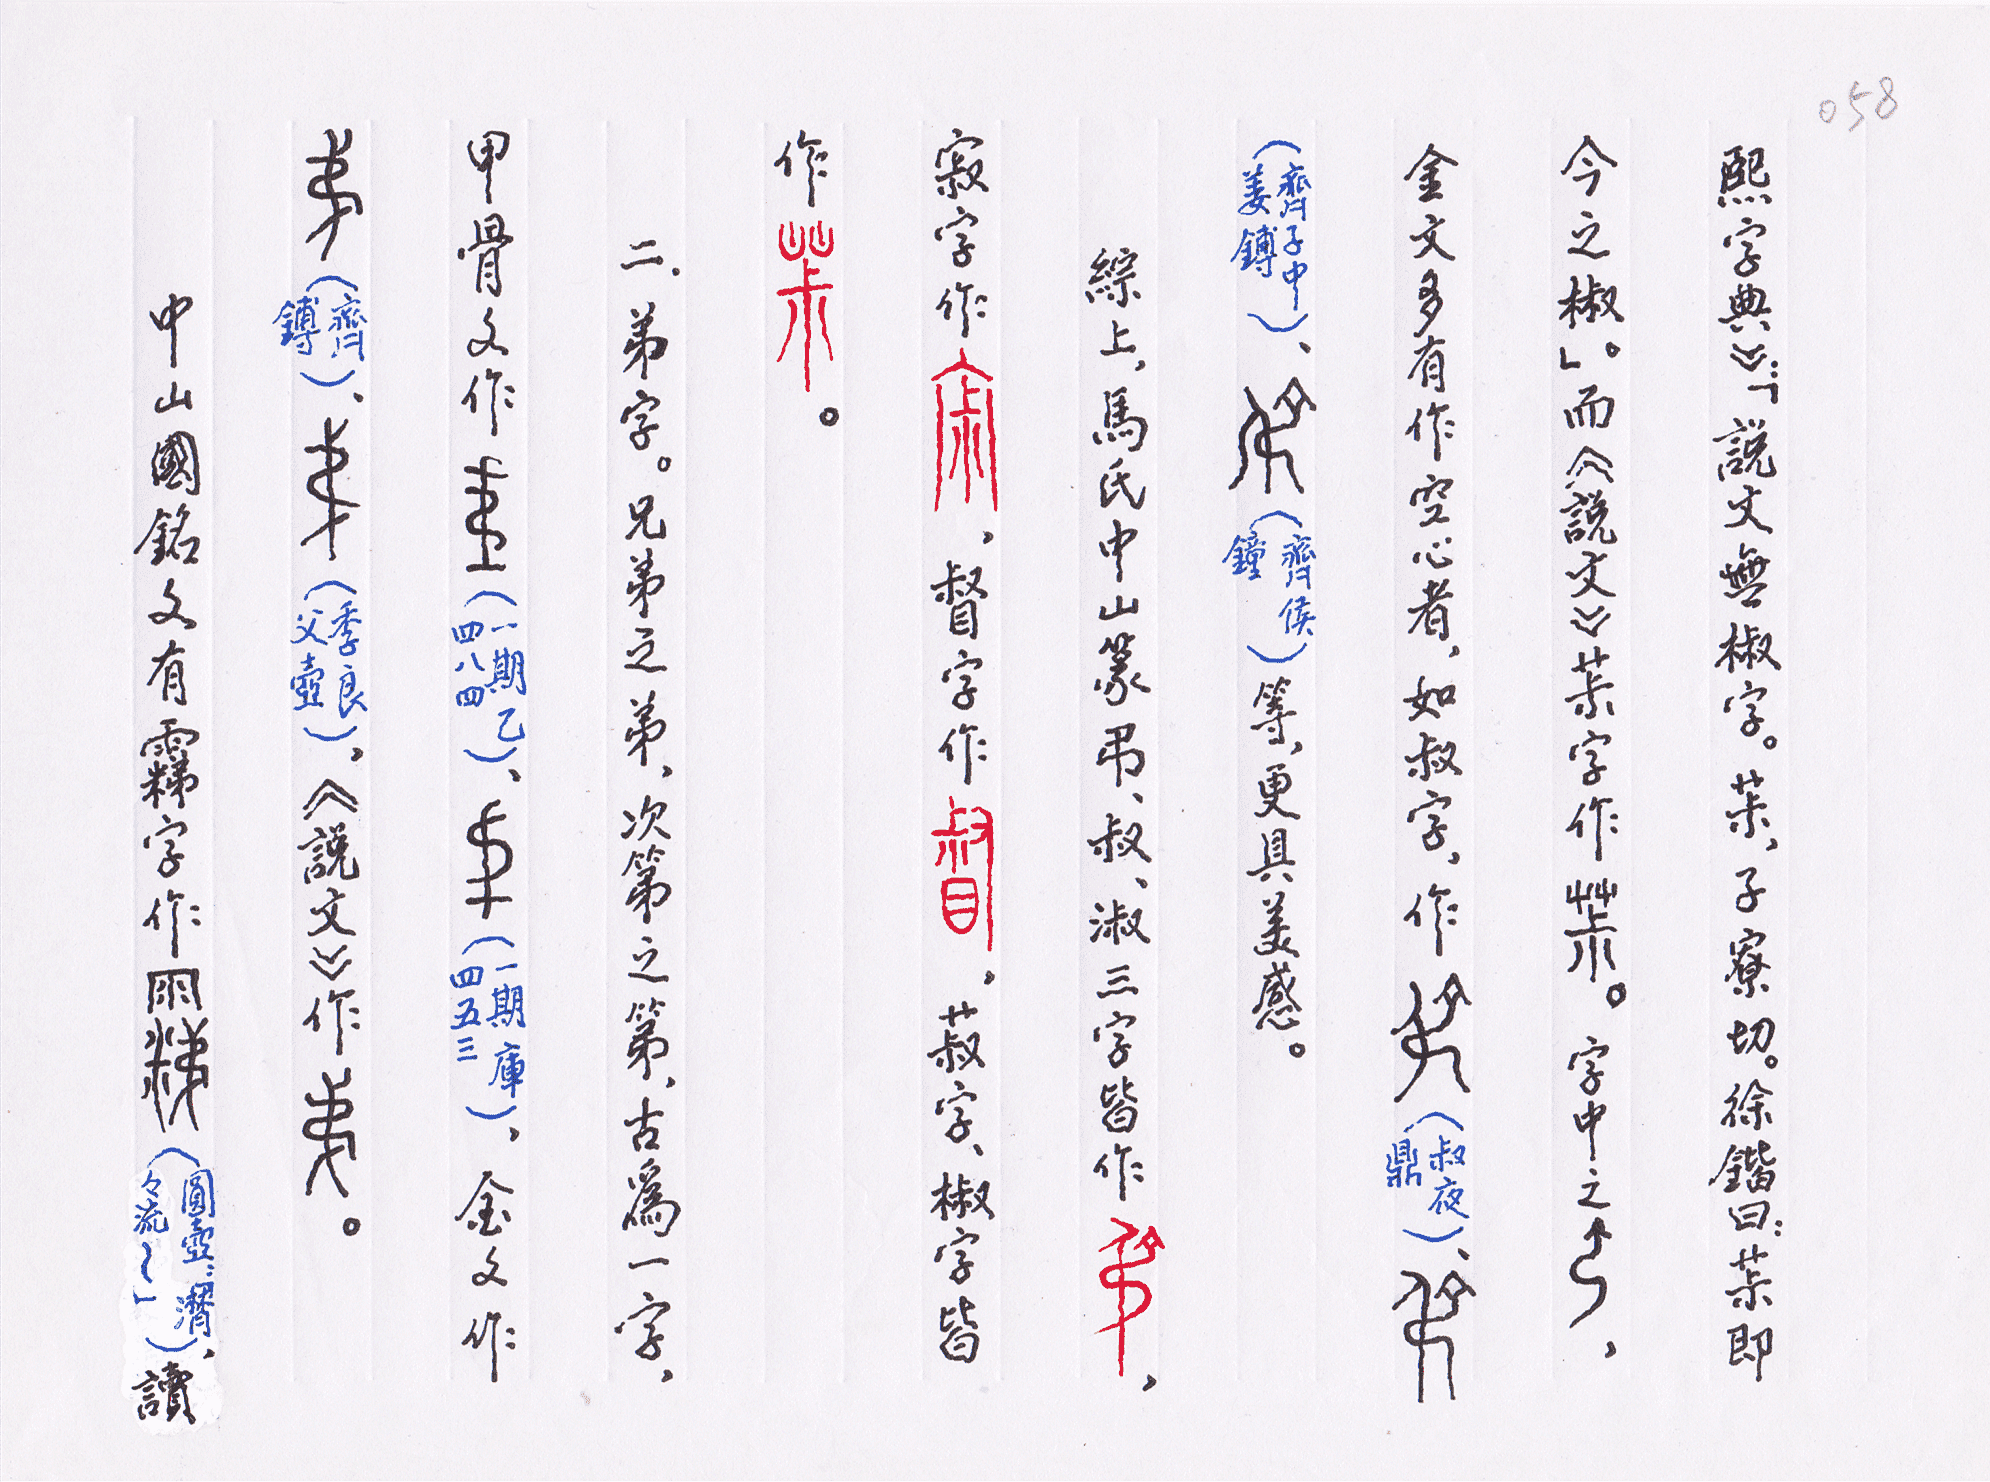 058
熙字典》:「説文無椒字。茮、子寮切。徐鍇曰:茮即
今之椒」。而《説文》茮字作。字中之,
金文多有作空心者、如叔字,作(叔夜鼎)、
(齊子中姜鎛)、(齊侯鐘)等,更具美感。
綜上,馬氏中山篆弔、叔、淑三字皆作,
寂字作,督字作。菽字、椒字皆
作。
二.弟字。兄弟之弟、次第之第,古爲一字,
甲骨文作(一期乙四八四)、(一期庫四五三),金文作
(齊鎛)、(季良父壺),《説文》作。
中山國銘文有字作(圓壺:「潸々流〻」),讀